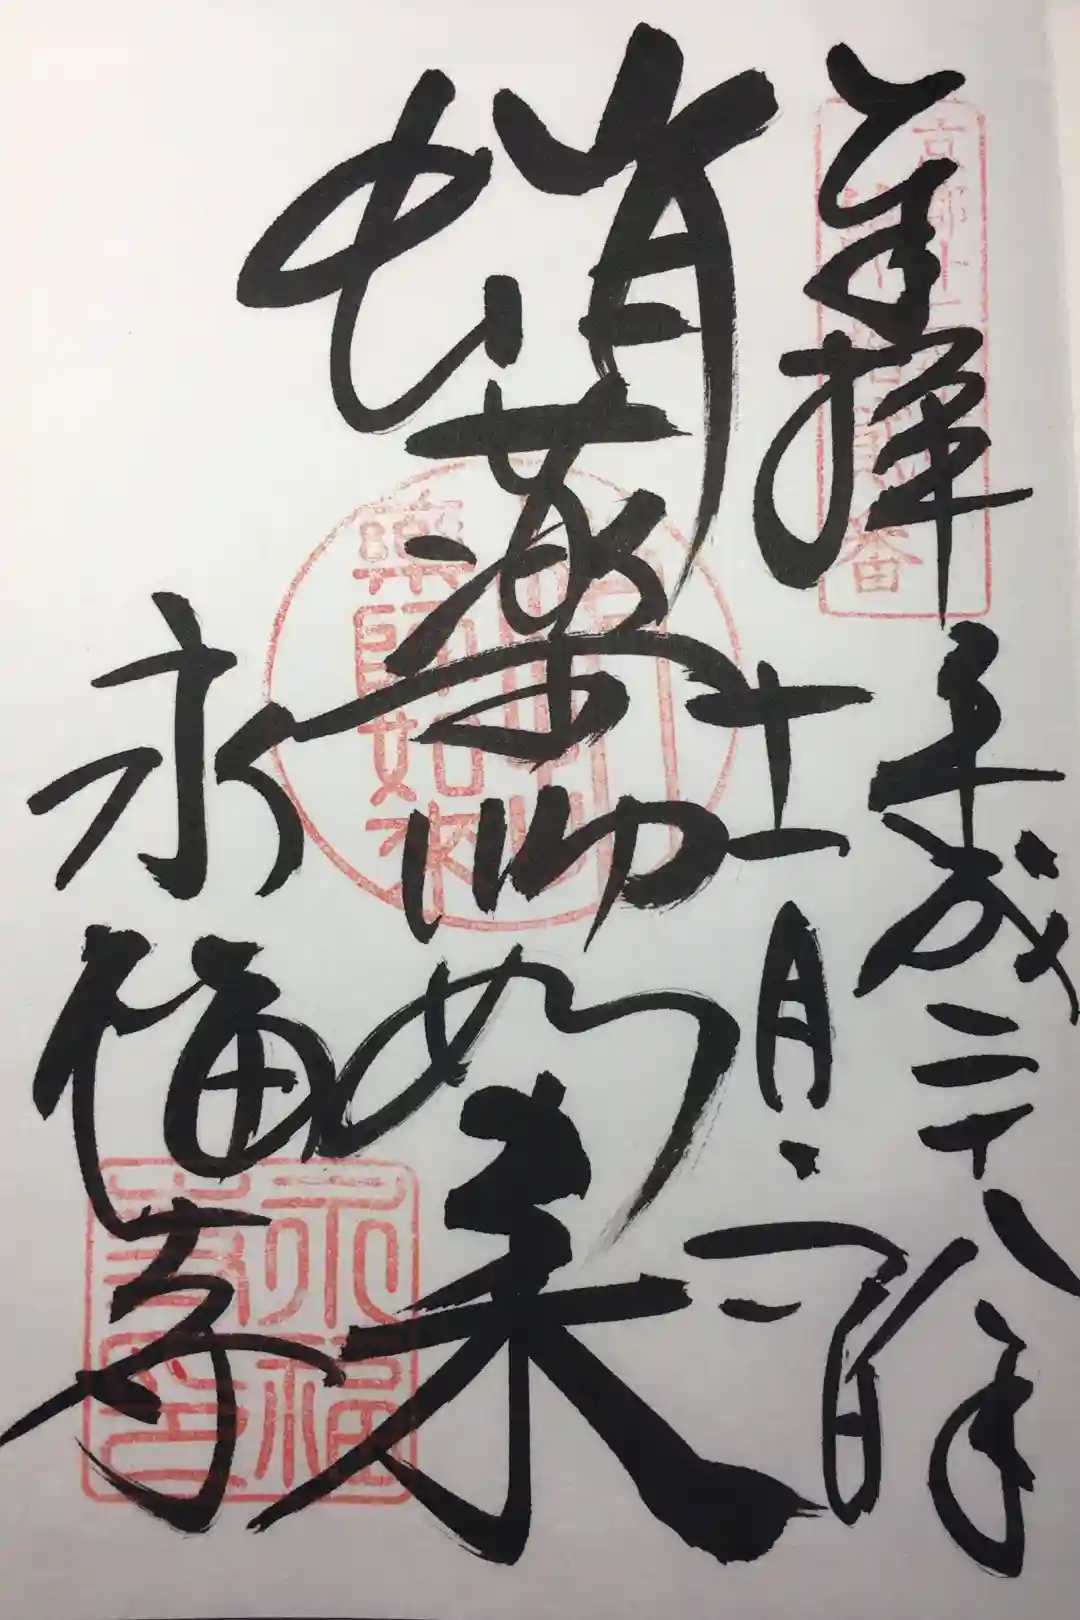 奉拝
平成二十八年
十一月二日
蛸薬師如来
永福寺
薬師如来
永福
寺印